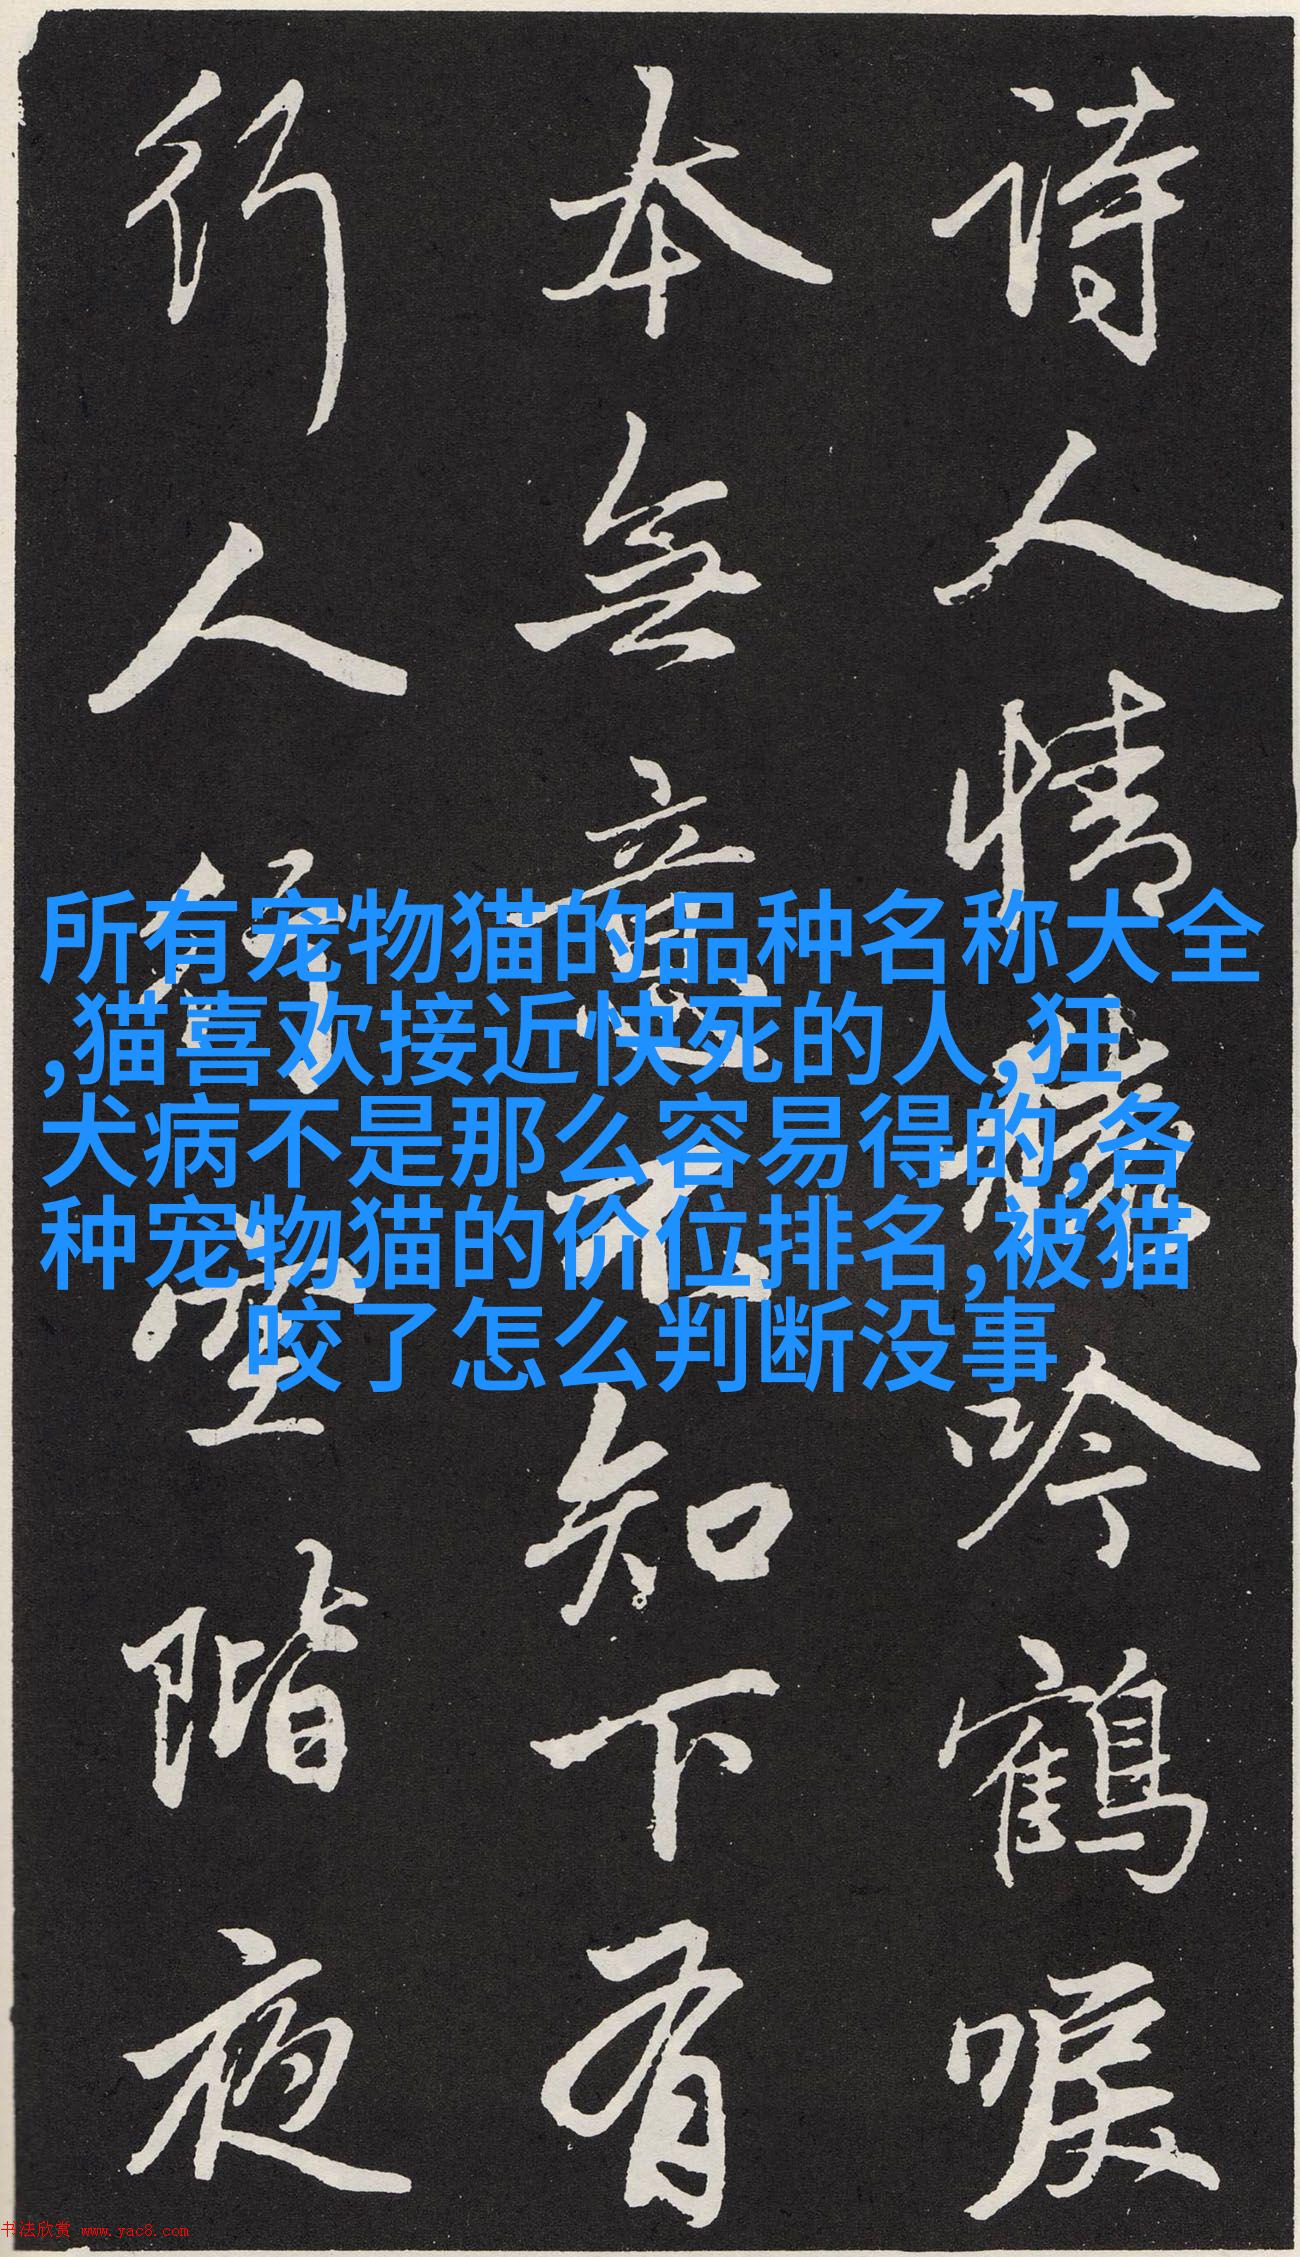 詩人情猿吟鶴唳
本無意不知下有
行人行空階夜
所有宠物猫的品种名称大全
,猫喜欢接近快死的人,狂
犬病不是那么容易得的,各
种宠物猫的价位排名,被猫
咬了怎么判断没事
书法欣赏 www.yac8.com